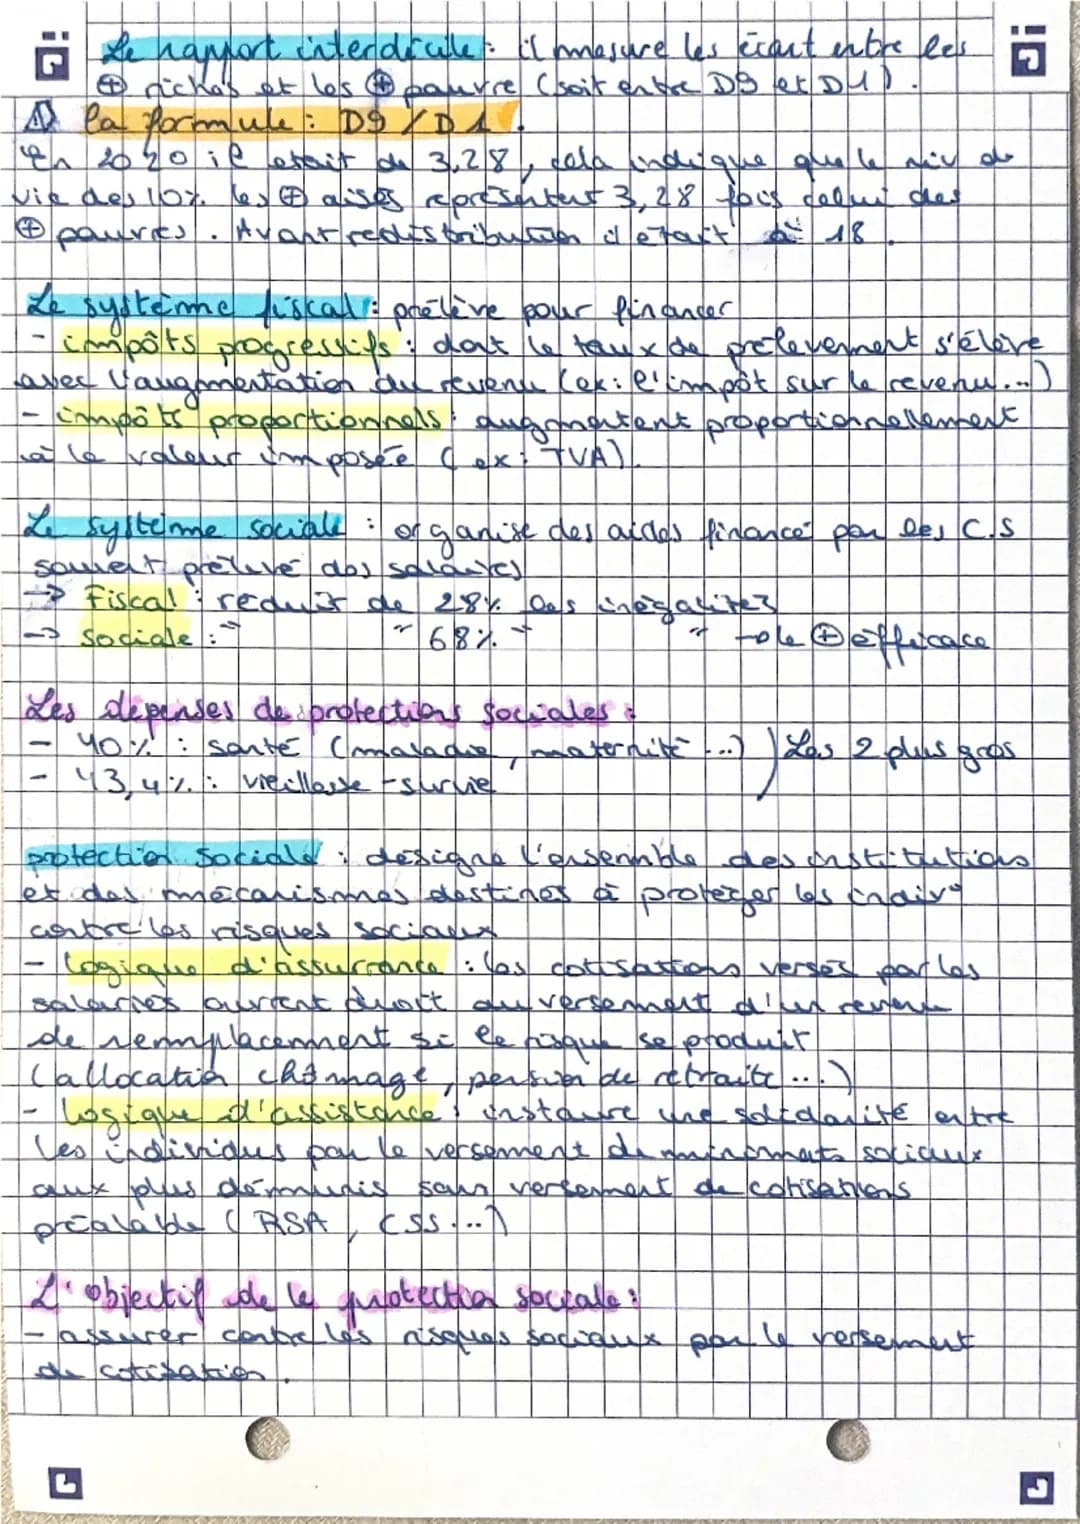 Le rapport interdécile : il mesure les écart entre les
⊕ riches et les ⊕ pauvre (soit entre D9 et D1).
⚠ la formule : D9 / D1.
En 2020 il était de 3,28, cela indique que le niv de
vie des 10% les ⊕ aisés représentent 3,28 fois celui des
⊕ pauvres. Avant redistribution il était à 18.
Le système fiscal : prélève pour financer
- impôts progressifs : dont le taux de prélevement s'élève
avec l'augmentation du revenu (ex: l'impôt sur le revenu...)
- impôts proportionnels : augmentent proportionnellement
à la valeur imposée (ex: TVA).
Le système sociale : organise des aides financé par les C.S
souvent prélevé des salaires
-> Fiscal : réduit de 28% les inégalités
-> sociale : " " 68% " " role ⊕ efficace
Les dépenses de protections sociales :
- 40% : santé (maladie, maternité ...) ) Les 2 plus gros
- 43,4% : vieillesse - survie
protection sociale : désigne l'ensemble des institutions
et des mécanismes destinés à protéger les indiv°
contre les risques sociaux
- logique d'assurrance : les cotisations versés par les
salariés ouvrent droit au versement d'un revenu
de remplacement si le risque se produit
(allocation chômage, pension de retraite ...)
- logique d'assistance : instaure une solidarité entre
les individus par le versement de minimats sociaux
aux plus démunis sans versement de cotisations
préalable (RSA, CSS ...)
L'objectif de la protection sociale :
- assurer contre les risques sociaux par le versement
de cotisation.